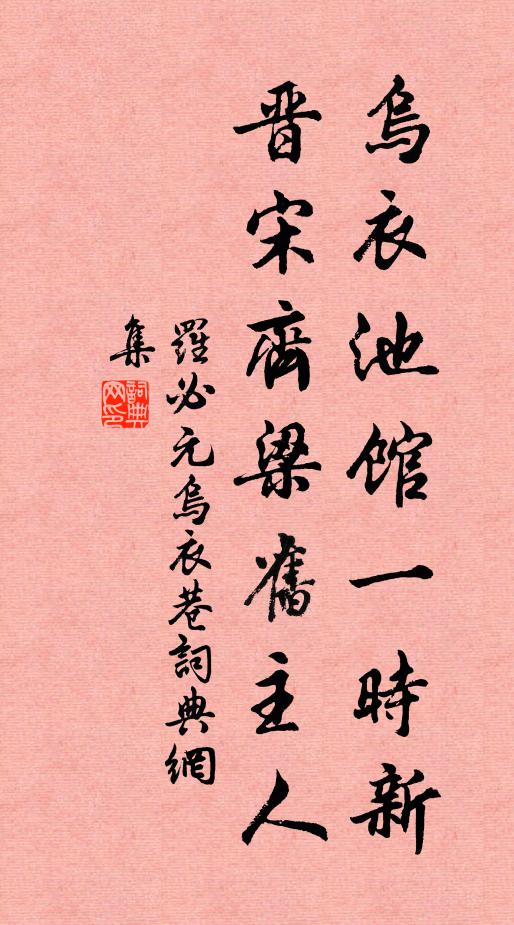 烏衣池館一時新
晋宋齊梁舊主人
羅必元烏衣巷詞典網
集
詞典網印